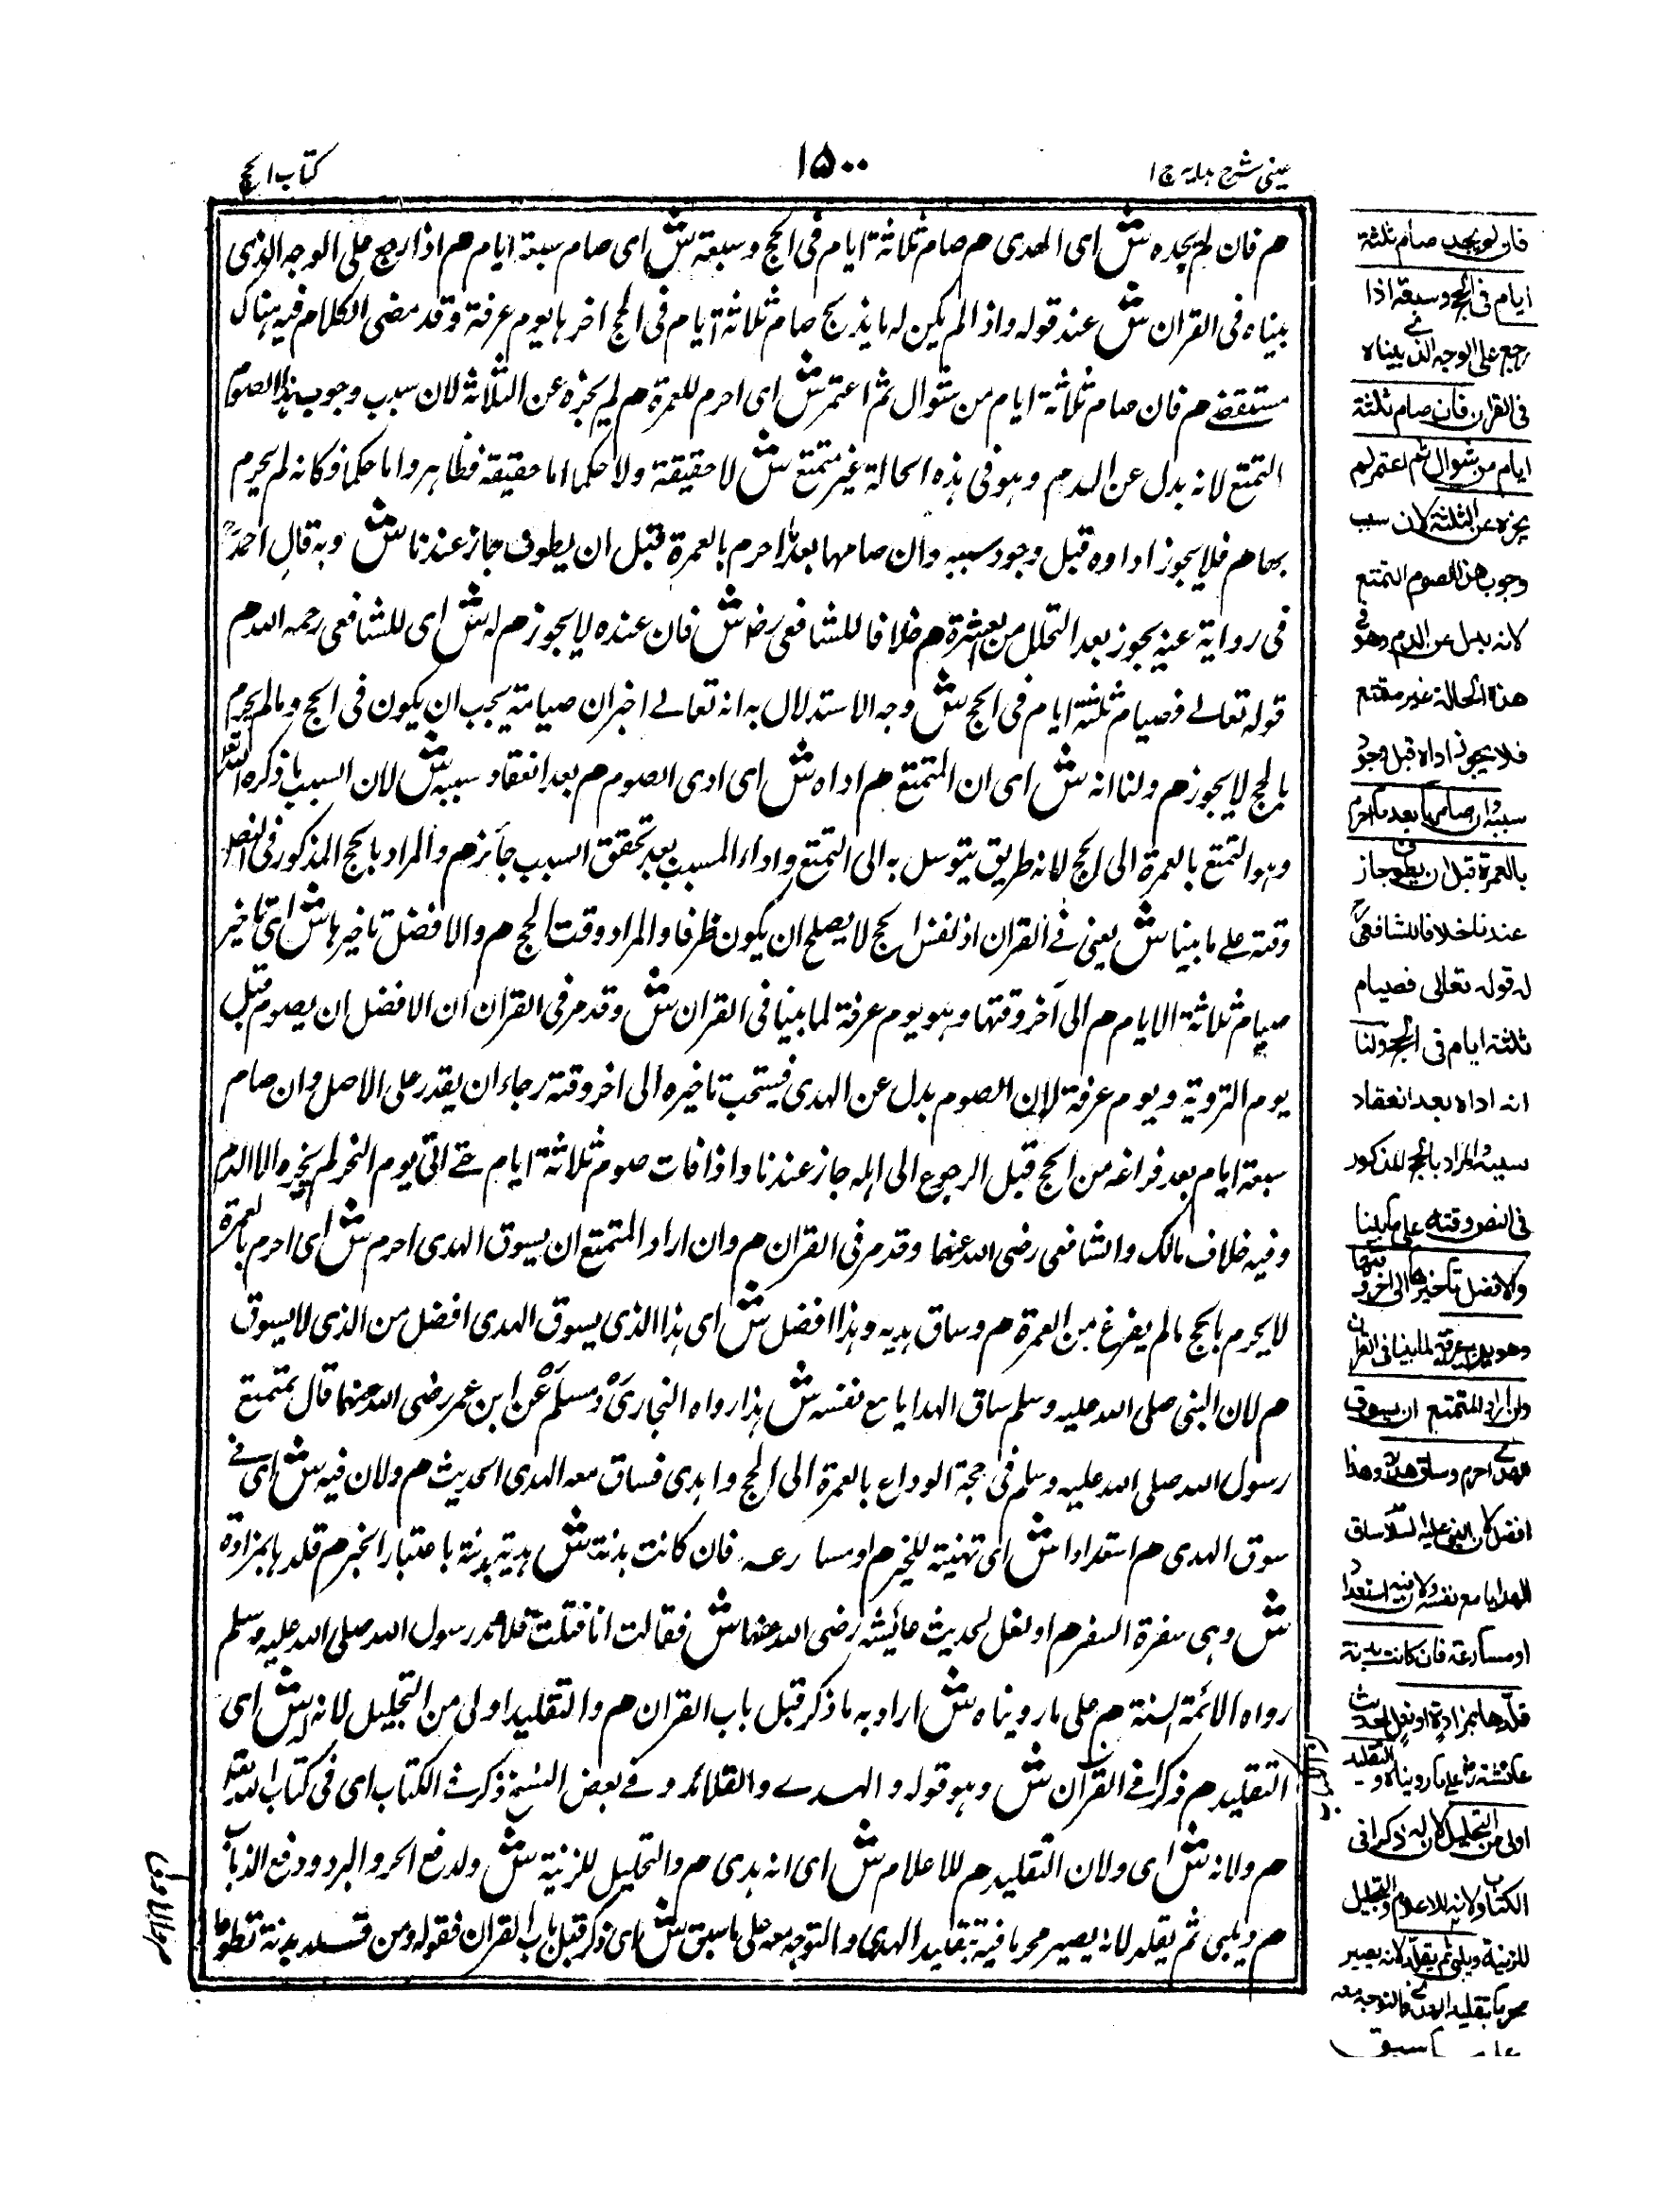 عینی شرح ہدایہ ج ۱
۱۵۰۰
کتاب الحج
م فان لم یجدہ ش ای الهدی م صام ثلاثة ایام فی الحج وسبعة ش ای صام سبعة ایام م اذا رجع علی الوجه الذی
بیناه فی القران ش عند قوله واذا لم یکن له ما یذبح صام ثلاثة ایام فی الحج اخرها یوم عرفة وقد مضی الکلام فیه هناک
مستقصے م فان صام ثلاثة ایام من شوال ثم اعتمر ش ای احرم للعمرة م لم یجزه عن الثلاثة لان سبب وجوب هذا الصوم
التمتع لانه بدل عن الدم وهو فی هذه الحالة غیر متمتع ش لا حقیقة ولا حکما اما حقیقة فظاهر واما حکما فکانه لم یحرم
بها م فلا یجوز اداوه قبل وجود سببه وان صامها بعد ما احرم بالعمرة قبل ان یطوف جاز عندنا ش وبه قال احمد
فی روایة عنه یجوز بعد التحلل من العمرة م خلافا للشافعی رض ش فان عنده لا یجوز م له ش ای للشافعی رحمه الله م
قوله تعالے فصیام ثلثة ایام فی الحج ش وجه الاستدلال به انه تعالے اخبر ان صیامه یجب ان یکون فی الحج وما لم یحرم
بالحج لا یجوز م ولنا انه ش ای ان المتمتع م اداه ش ای ادی الصوم م بعد انعقاد سببه ش لان السبب ما ذکره الله تعالی
وهو التمتع بالعمرة الی الحج لانه طریق یتوسل به الی التمتع واداء المسبب بعد تحقق السبب جائز م والمراد بالحج المذکور فی النص
وقته علے ما بینا ش یعنی فے القران اذ نفس الحج لا یصلح ان یکون ظرفا والمراد وقت الحج م والافضل تاخیرها ش ای تاخیر
صیام ثلاثة الایام م الی آخر وقتها وهو یوم عرفة لما بینا فی القران ش وقد مر فی القران ان الافضل ان یصوم قبل
یوم الترویة ویوم عرفة لان الصوم بدل عن الهدی فیستحب تاخیره الی اخر وقته رجاء ان یقدر علی الاصل وان صام
سبعة ایام بعد فراغه من الحج قبل الرجوع الی اهله جاز عندنا واذا فات صوم ثلاثة ایام حتے اتی یوم النحر لم یجزه الا الدم
وفیه خلاف مالک والشافعی رضی الله عنهما وقد مر فی القران م وان اراد المتمتع ان یسوق الهدی احرم ش ای احرم بالعمرة
لا یحرم بالحج ما لم یفرغ من العمرة م وساق هدیه وهذا افضل ش ای هذا الذی یسوق الهدی افضل من الذی لا یسوق
م لان النبی صلی الله علیه وسلم ساق الهدایا مع نفسه ش هذا رواه البخاری ومسلم عن ابن عمر رضی الله عنهما قال تمتع
رسول الله صلی الله علیه وسلم فی حجة الوداع بالعمرة الی الحج واهدی فساق معه الهدی الحدیث م ولان فیه ش ای فے
سوق الهدی م استعدادا ش ای تهنیة للخیر م او مسارعة فان کانت بدنة ش هدیة بدنة باعتبار الخبر م قلدها بمزادة
ش وهی سفرة السفر م او نعل لحدیث عائیشه رضی الله عنها ش فقالت انا فتلت قلائد رسول الله صلی الله علیه وسلم
رواه الائمة الستة م علی ما رویناه ش اراد به ما ذکر قبل باب القران م والتقلید اولی من التجلیل لانه ش ای
التقلید م ذکرا فے القرآن ش وهو قوله والهدے والقلائد وفے بعض النسخ ذکر فے الکتاب ای فی کتاب الله تعالی
م ولانه ش ای ولان التقلید م للاعلام ش ای انه هدی م والتجلیل للزینة ش ولدفع الحر والبرد ودفع الذباب
م ویلبی ثم یقلد لانه یصیر محرما فیة بتقلید الهدی والتوجه معه علی ما سبق ش ای ذکر قبل باب القران فقوله ومن قلد بدنة تطوعا
فان لم یجد صام ثلثة
ایام فی الحج وسبعة اذا
رجع علی الوجه الذی بیناه
فی القران فان صام ثلثة
ایام من شوال ثم اعتمر لم
یجزه عن الثلثة لان سبب
وجوب هذا الصوم التمتع
لانه بدل عن الدم وهو فی
هذه الحالة غیر متمتع
فلا یجوز اداه قبل وجود
سببه وان صامها بعد ما احرم
بالعمرة قبل ان یطوف جاز
عندنا خلافا للشافعی
له قوله تعالی فصیام
ثلثة ایام فی الحج ولنا
انه اداه بعد انعقاد
سببه والمراد بالحج المذکور
فی النص وقته علی ما بینا
والافضل تاخیرها الی اخر وقتها
وهو یوم عرفة لما بینا فی القران
وان اراد المتمتع ان یسوق
الهدی احرم وساق هدیه وهذا
افضل لان النبی علیه السلام ساق
الهدایا مع نفسه ولان فیه استعدادا
او مسارعة فان کانت بدنة
قلدها بمزادة او نعل لحدیث
عائشة رض علی ما رویناه والتقلید
اولی من التجلیل لان له ذکرا فی
الکتاب ولانه للاعلام والتجلیل
للزینة ویلبی ثم یقلد لانه یصیر
محرما بتقلید الهدی والتوجه معه
علی ما سبق